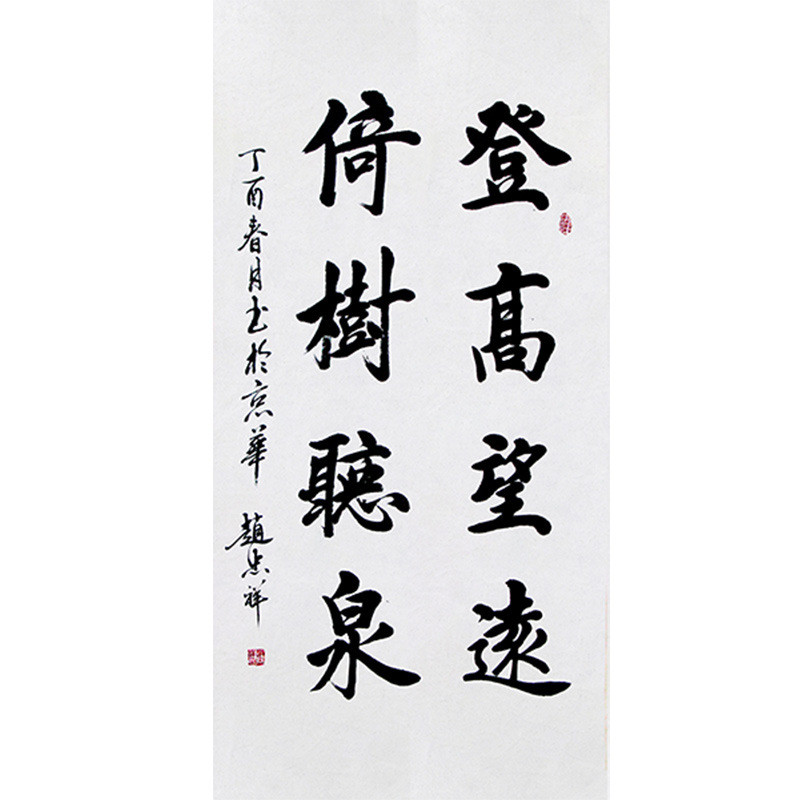 登髙望遠
倚樹聽泉
丁酉春月书於京華 趙忠祥